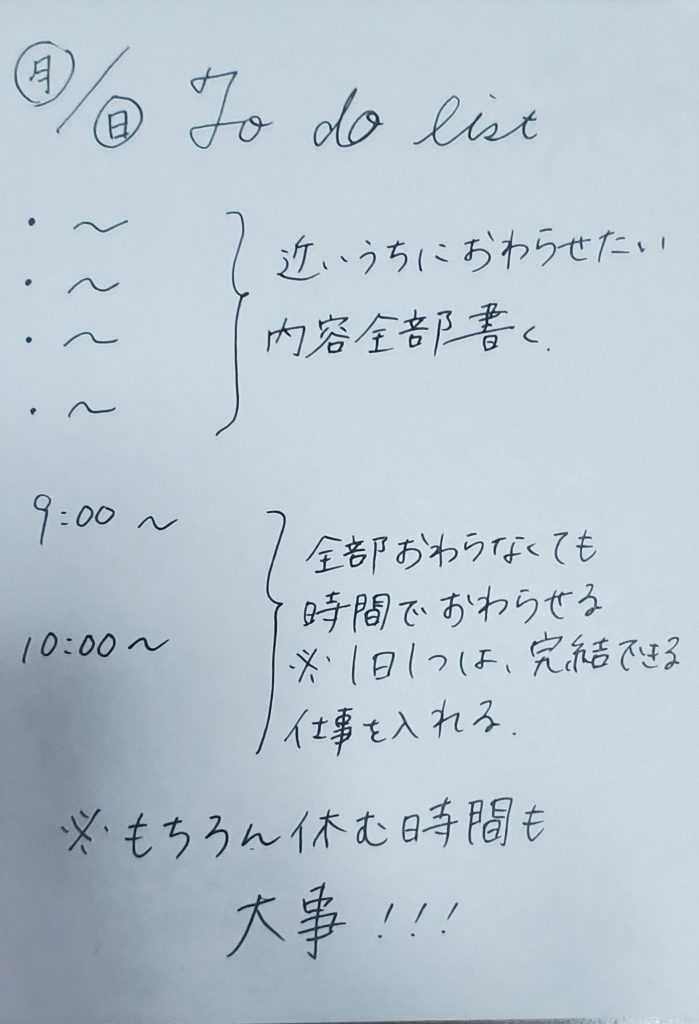 月/日 To do list
・ 〜
・ 〜
・ 〜
・ 〜
近いうちにおわらせたい
内容全部書く.
9:00 〜
10:00 〜
全部おわらなくても
時間でおわらせる
※ 1日1つは、完結できる
仕事を入れる.
※ もちろん休む時間も
大事!!!